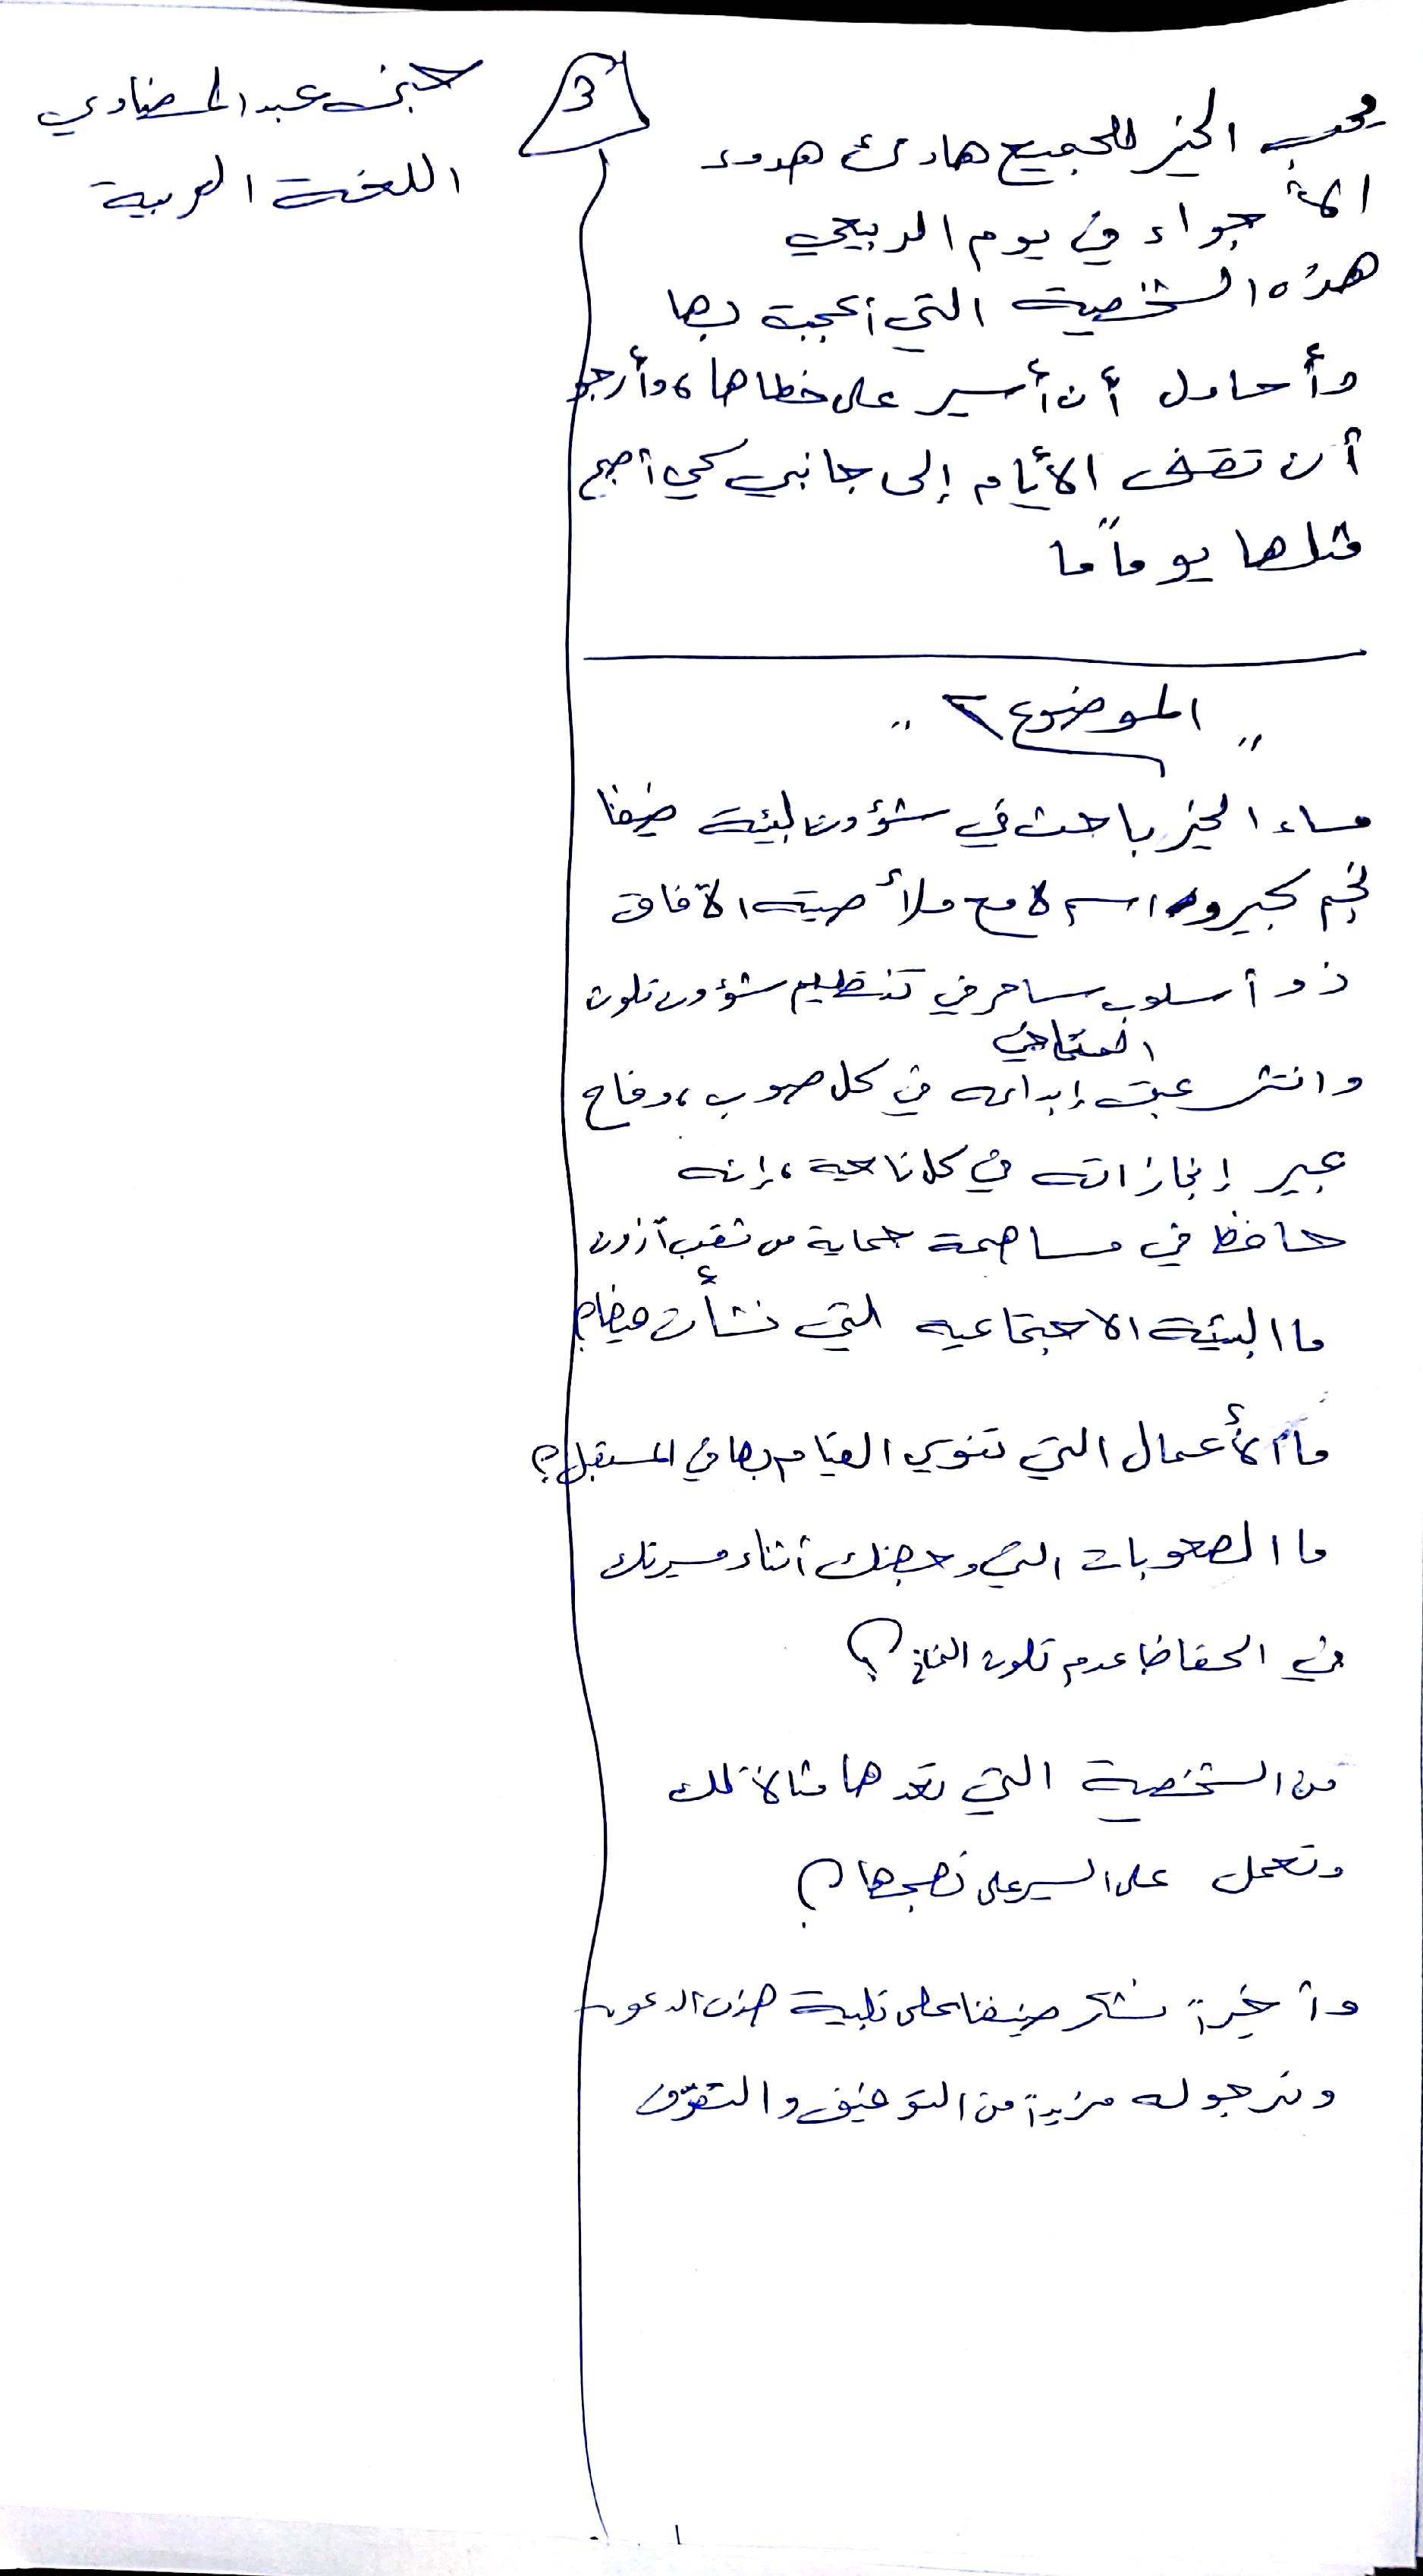 3
عبد
اللغة العربية
يحب الخير للجميع هادئ هدوء
الأجواء في يوم الربيعي
هذه الشخصية التي أعجبة بها
وأحاول أن أسير على خطاها، وأرجو
أن تقف الأيام إلى جانبي كي أصبح
مثلها يوماً ما
" الموضوع ٢ "
مساء الخير باحث في شؤون لبيئة ضيفنا
نجم كبير واسم لامع ملأ صيته الآفاق
ذو أسلوب ساحر في تنظيم شؤون تلوث
المناخي
وانتشر عبق إبداعه في كل صوب، وفاح
عبير إنجازاته في كل ناحية، إنه
حافظ في مساهمة حماية من ثقب أزون
ما البيئة الاجتماعيه التي نشأت فيها؟
ما الأعمال التي تنوي القيام بها في المستقبل؟
ما الصعوبات التي وجهتك أثناء مسيرتك
في الحفاظ عدم تلوث المناخ؟
من الشخصية التي تعدها مثالاً لك
وتعمل على السير على نهجها؟
وأخيراً نشكر ضيفنا على تلبية هذه الدعوة
ونرجو له مزيداً من التوفيق والتفوّق